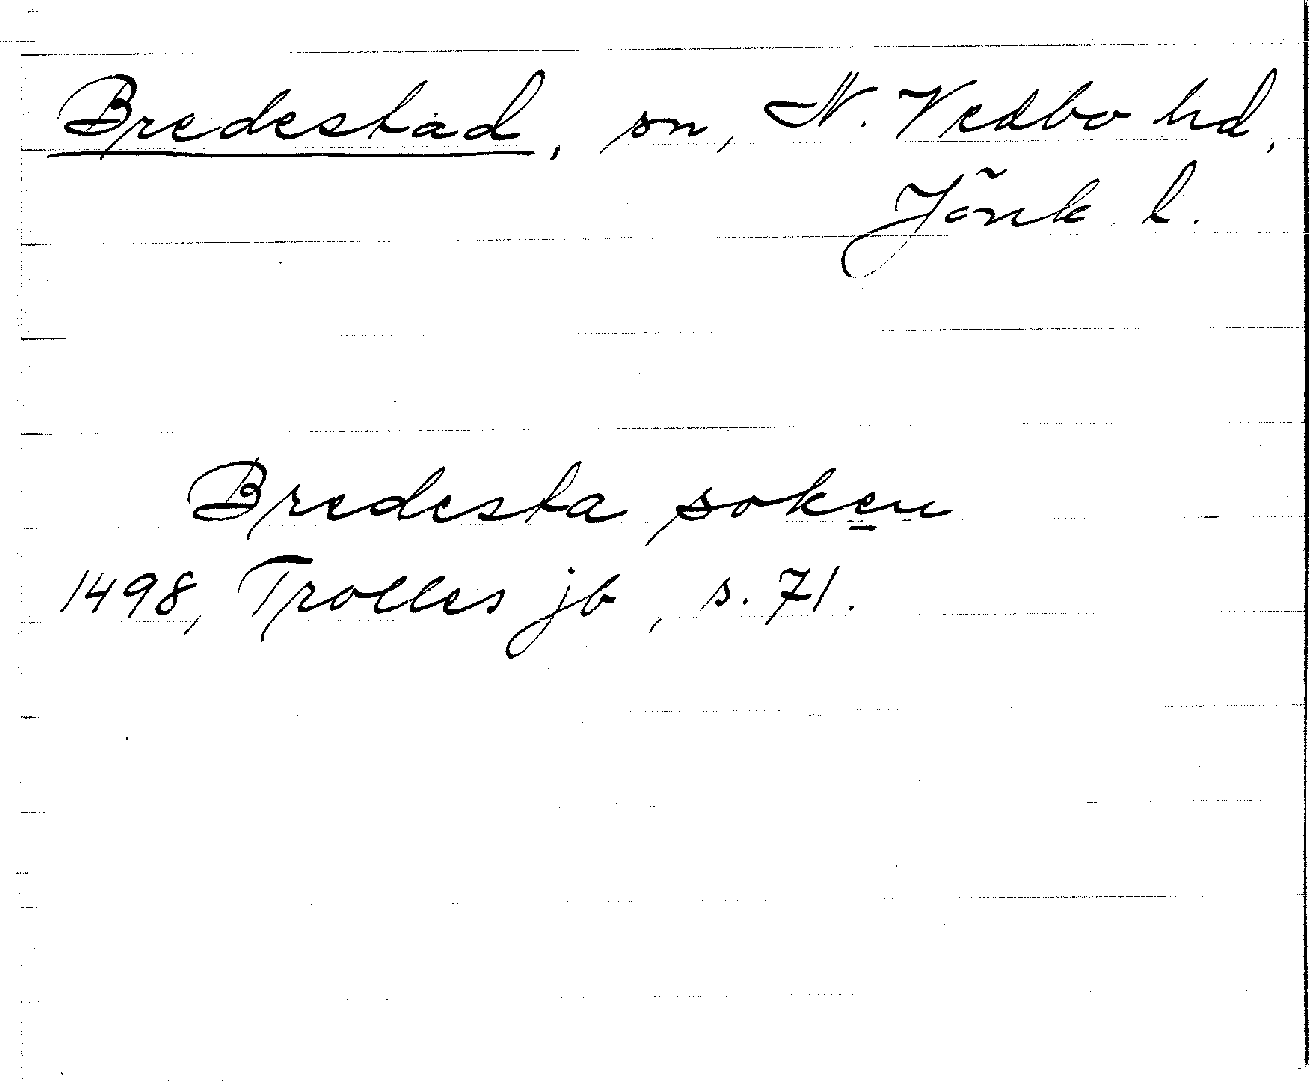 Bredestad, sn, N. Vedbo hd,
Jönk. l.
Bredesta soken
1498, Trolles jb, s. 71.